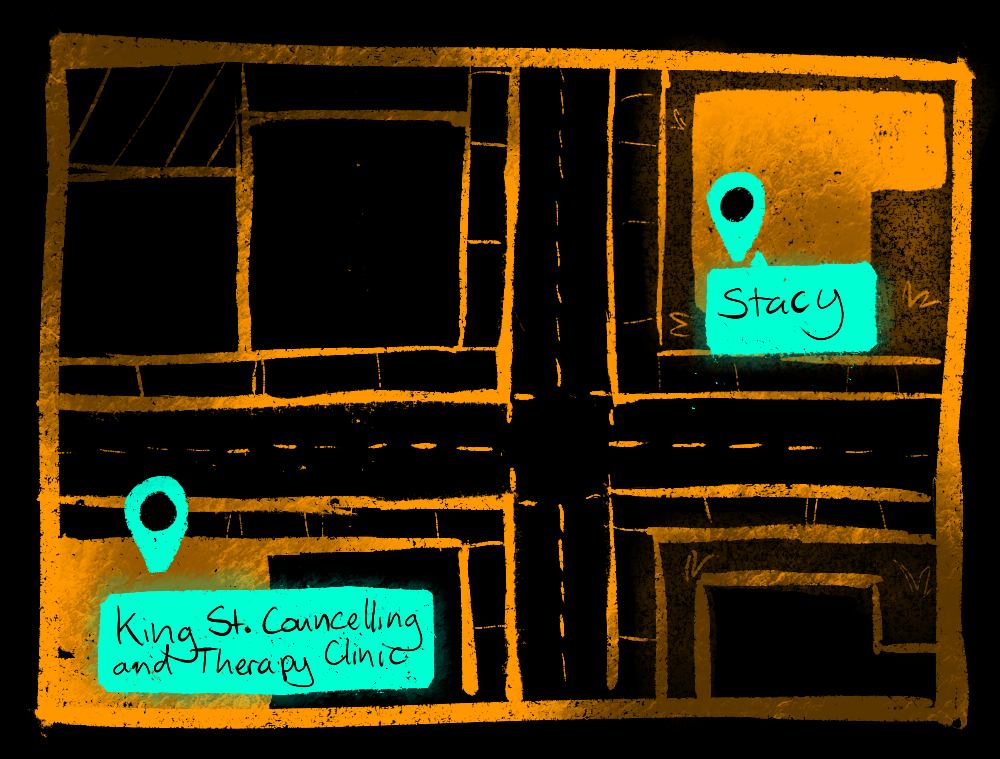 Stacy
King St. Councelling
and Therapy Clinic